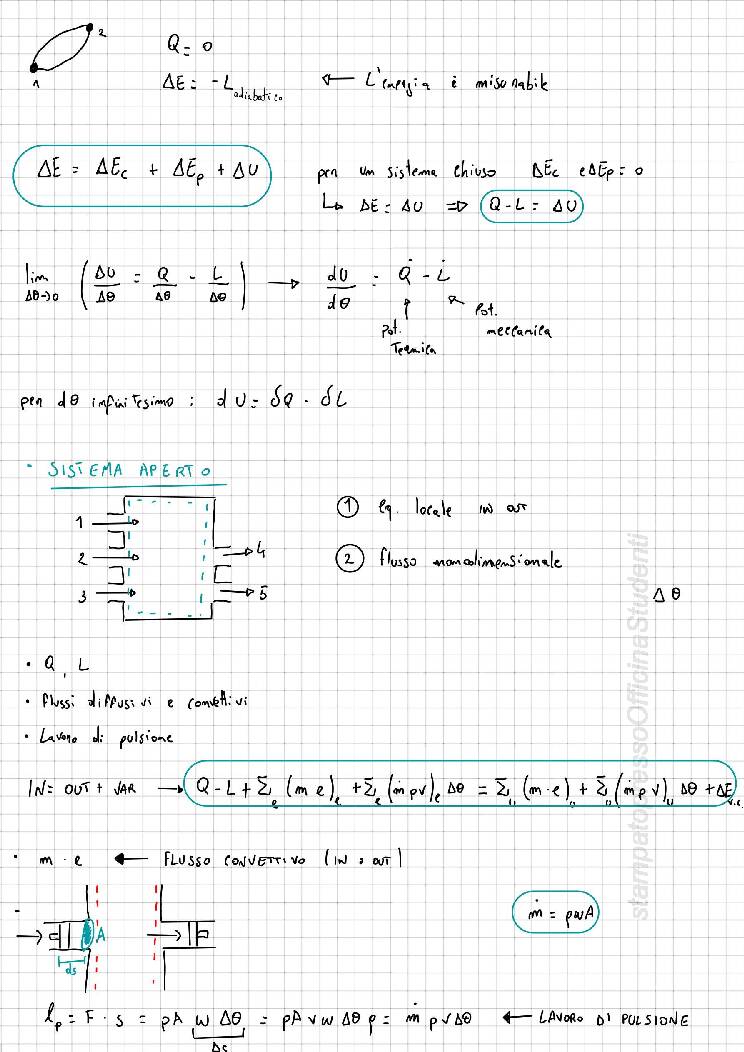 2
1
Q = 0
ΔE = -L adiabatico ← L'energia è misurabile
ΔE = ΔEc + ΔEp + ΔU
per un sistema chiuso ΔEc e ΔEp = 0
↳ ΔE = ΔU ⇒ Q - L = ΔU
lim Δθ→0 (ΔU/Δθ = Q/Δθ - L/Δθ) → dU/dθ = Q̇ - L̇
Pot. Termica
Pot. meccanica
per dθ infinitesimo : dU = δQ - δL
• SISTEMA APERTO
1
2
3
4
5
① Eq. locale IN OUT
② flusso monodimensionale
Δθ
• Q, L
• Flussi diffusivi e convettivi
• Lavoro di pulsione
IN = OUT + VAR → Q - L + Σe (m e)e + Σe (ṁ p v)e Δθ = Σu (m · e)u + Σu (ṁ p v)u Δθ + ΔE v.c.
• m · e ← FLUSSO CONVETTIVO (IN o OUT)
A
ds
ṁ = ρwA
Lp = F · s = pA w Δθ = pA v w Δθ ρ = ṁ p v Δθ ← LAVORO DI PULSIONE
Δs
stampatopressoOfficinaStudenti